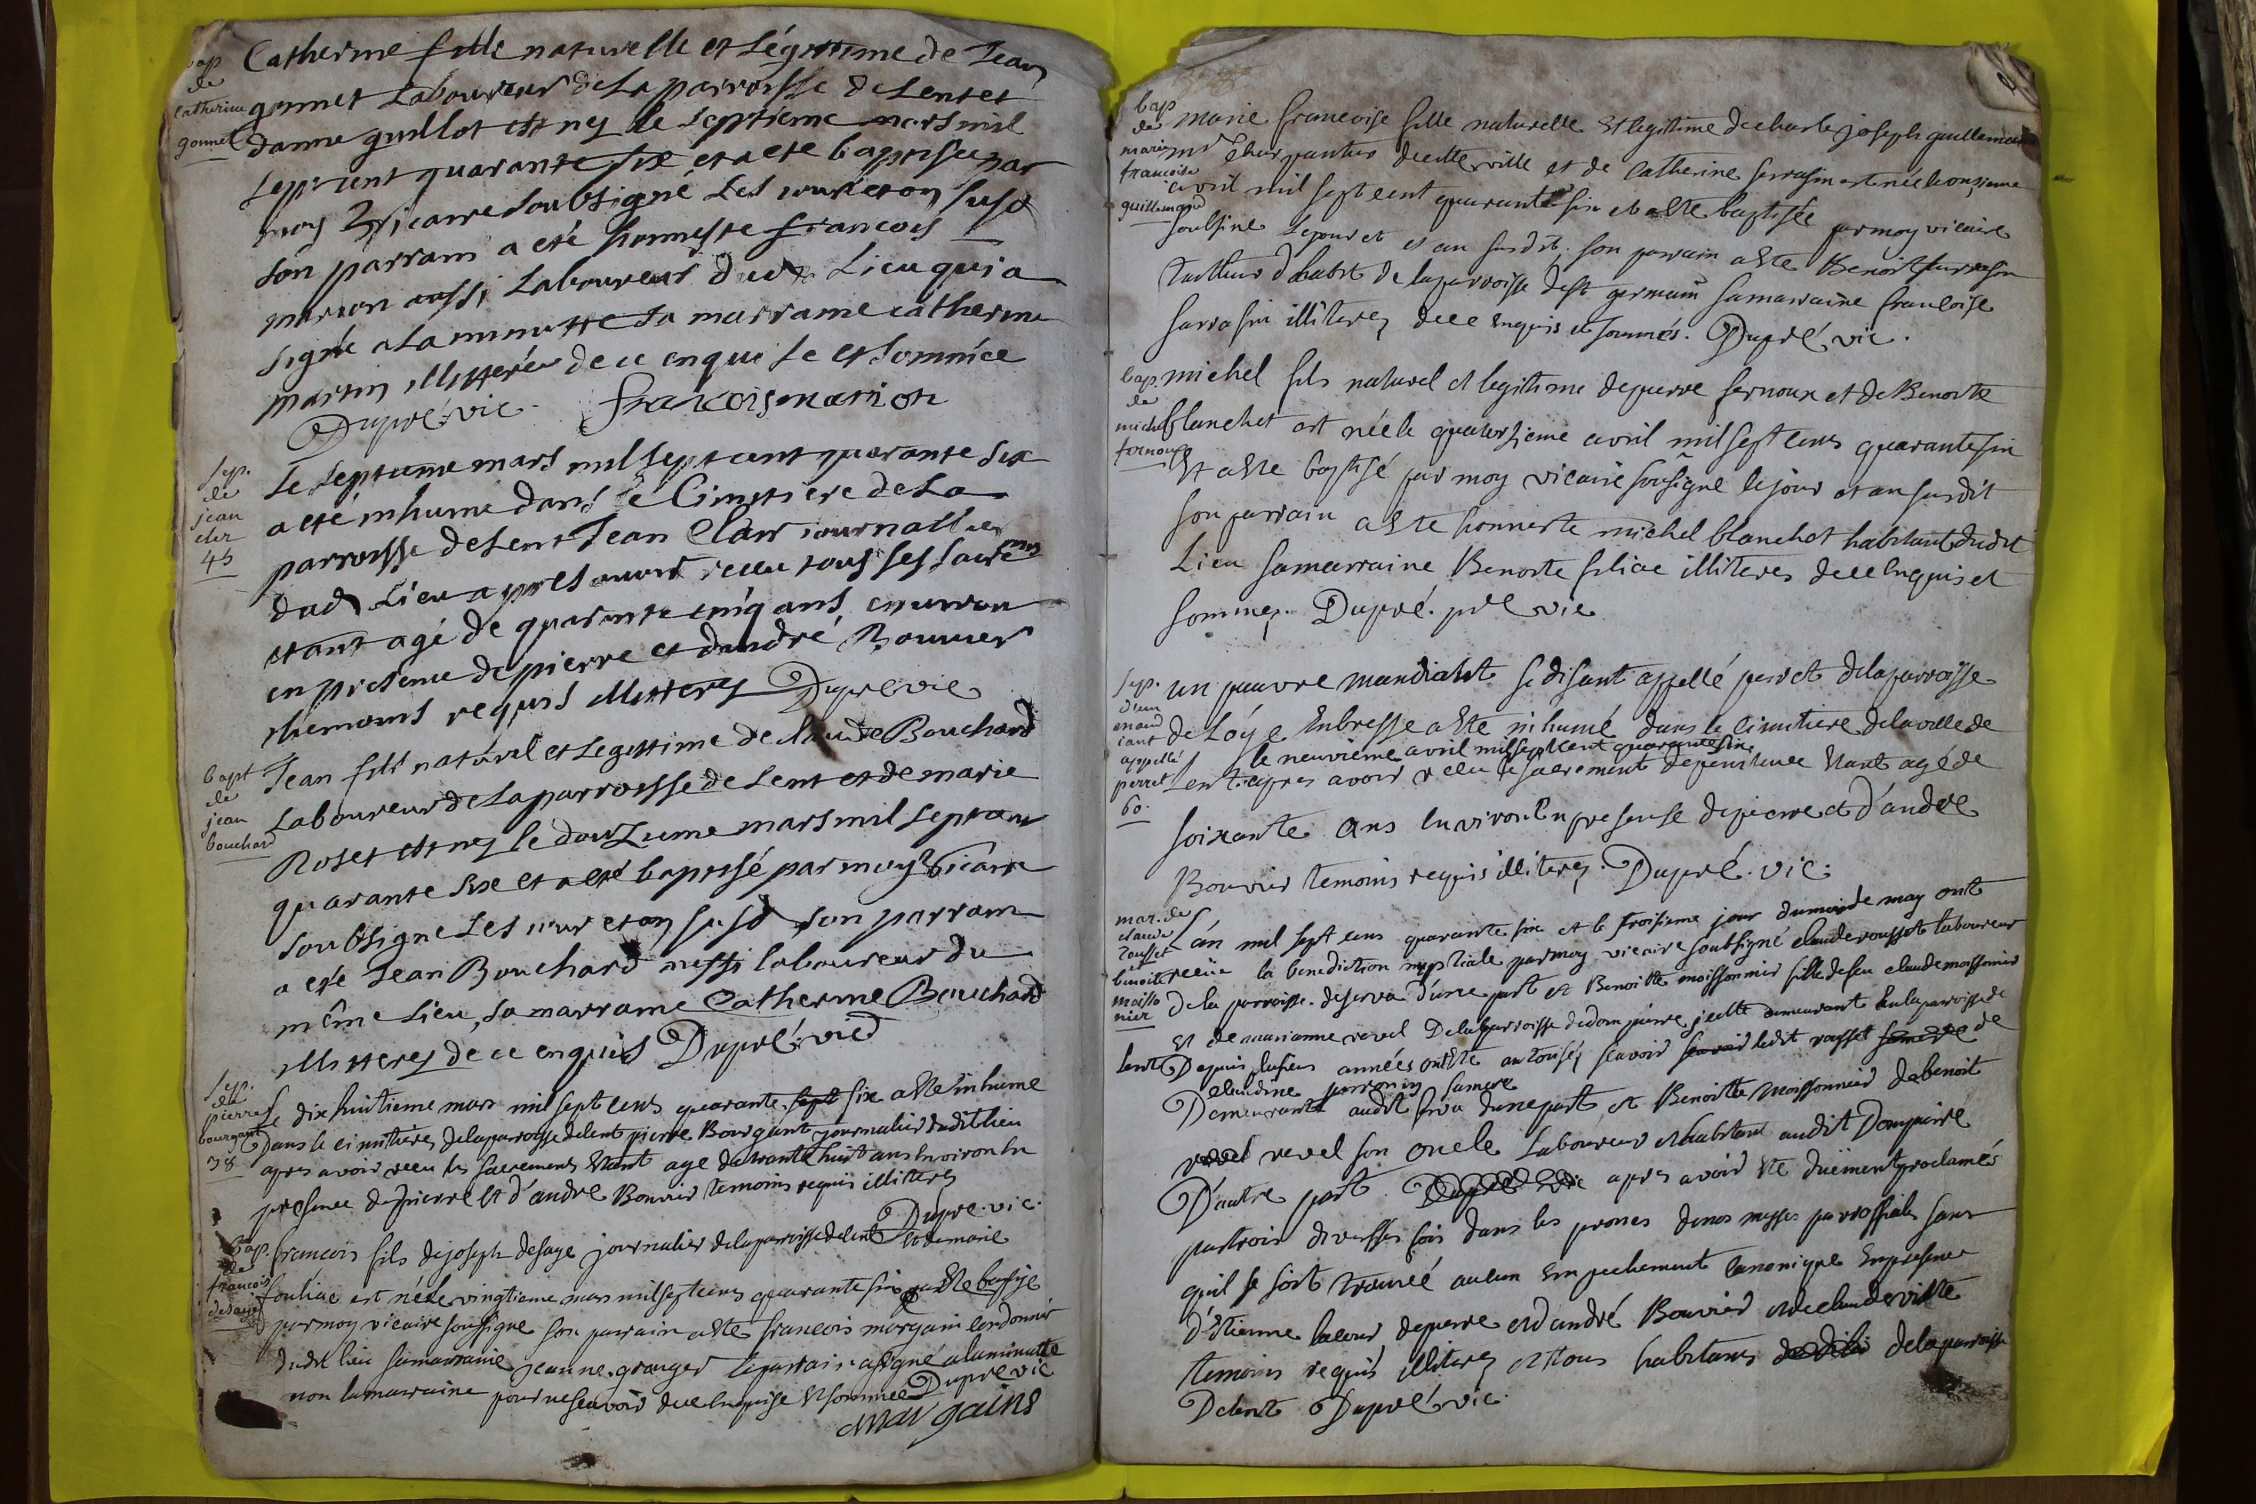 bap
de
Catherine
gonnet
Catherine fille naturelle et Légitime de Jean
gonnet Laboureur de La parroisse de Lent et
danne guillot est neÿ le septième mars mil
sept cent quarante six et a eté baptisée par
moy vicaire soubsigné Les jour et an susd
son parrain a eté honneste francois
marion aussi Laboureur dud Lieu qui a
signé a La minutte sa marraine catherine
martin illitteree de ce enquise et sommée
Dupré vic. francois marion
sep.
de
jean
cler
45
Le septieme mars mil sept cent quarante six
a eté inhumé dans le Cimetiere de La
parroisse de Lent Jean Clair journallier
dud Lieu apres avoir receu tous ses sacremens
etant agé de quarante cinq ans environ
en presence de pierre et dandré Bouvier
themoins requis illitterez Dupré vic
bapt
de
jean
bouchard
Jean fils naturel et Legittime de claude Bouchard
Laboureur de La parroisse de Lent et de marie
Roset est neÿ le douzieme mars mil sept cent
quarante six et a eté baptisé par moy vicaire
soubsigné Les jour et an susd son parrain
a eté Jean Bouchard aussi laboureur du
même Lieu, sa marraine Catherine Bouchard
illitterez de ce enquis Dupré vic
sep.
de
pierre
bourgant
38
Le dix huitieme mars mil sept cens quarante sept six a este inhumé
Dans le cimitiere de la paroisse de lent pierre Bourgant journalier dudit lieu
apres avoir receu les sacremens Etant agé de trante huit ans environ En
presence de pierre et d'andre Bouvier temoins requis illitteres
Dupre. vic.
bap.
de
francois
desage
francois fils de joseph desage journalier de la paroisse de lent et de marie
foulliac est né le vingtieme mars mil sept cens quarante six a este baptisé
par moy vicaire sousigne son parrain a este francois margain cordonnier
dudit lieu sa marraine jeanne granger le parrain a signé a la minutte
non la marraine pour ne scavoir de ce Enquise et sommée Dupre vic
margains
bap
de
marie
francoise
guillemard
marie francoise fille naturelle et legitime de charle joseph guillemard
mr charpantier de cette ville et de catherine sarrasin est née le onzieme
avril mil sept cent quarante six et a este baptisée par moy vicaire
soubsine le jour et et an susdit. son parrain a este Benoit sarrasin
tailleur d'habit de la parroisse de st germain sa marraine francoise
sarrasin illiterez de ce enquis et sommés. Dupré vic.
bap.
de
michel
fernoux
michel fils naturel et legitime de pierre fernoux et de Benoite
blanchet est née le quatorzieme avril mil sept cens quarante six
Et a este baptisé par moy vicaire sousigne le jour et an susdit
son parrain a este honneste michel blanchet habitant dudit
Lieu sa marraine Benoite filiac illiteres de ce Enquis et
sommez. Dupré. pre vic
sep.
d'un
mand
iant
appellé
perret
60.
un pauvre mandiant se disant appellé perret de la parroisse
de Loÿe En bresse a este inhumé dans le cimitiere de la ville de
le neuvieme avril mil sept cent quarante six
Lent. apres avoir receu le sacrement de penitence Etant agé de
soixante ans Environ En presense de pierre et d'andre
Bouvier temoins requis illiterez. Dupré. vic.
mar. de
claude
rousset
et
benoite
moisso
nier
L'an mil sept cens quarante six et le troisieme jour du mois de may ont
receüe la benediction nuptiale par moy vicaire soubsigné claude rousset laboureur
de la parroisse de serva d'une part et Benoitte moissonnier fille de feu claude moissonnier
Et de marianne revel De la parroisse de dompierre, jcelle demeurant En la parroisse de
lent Depuis plusieurs années ont Eté autorisés scavoir scavoir ledit rousset de
claudine perronin sa mere
Demeurant audit serva d'une part, et Benoitte Moissonnier de benoit
revel revel son oncle Laboureur et habitant audit Dompierre
D'autre part. Dupré vic apres avoir Eté duëment proclamés
par trois diverses fois dans les prones de nos messes parroissiales sans
quil se soit trouvé aucun Empechement canonique En presence
d'Etienne lacour de pierre et d'andré Bouvier et de claude vilte
temoins requis illiterez et tous habitans de la parroisse
De lent Dupré vic.